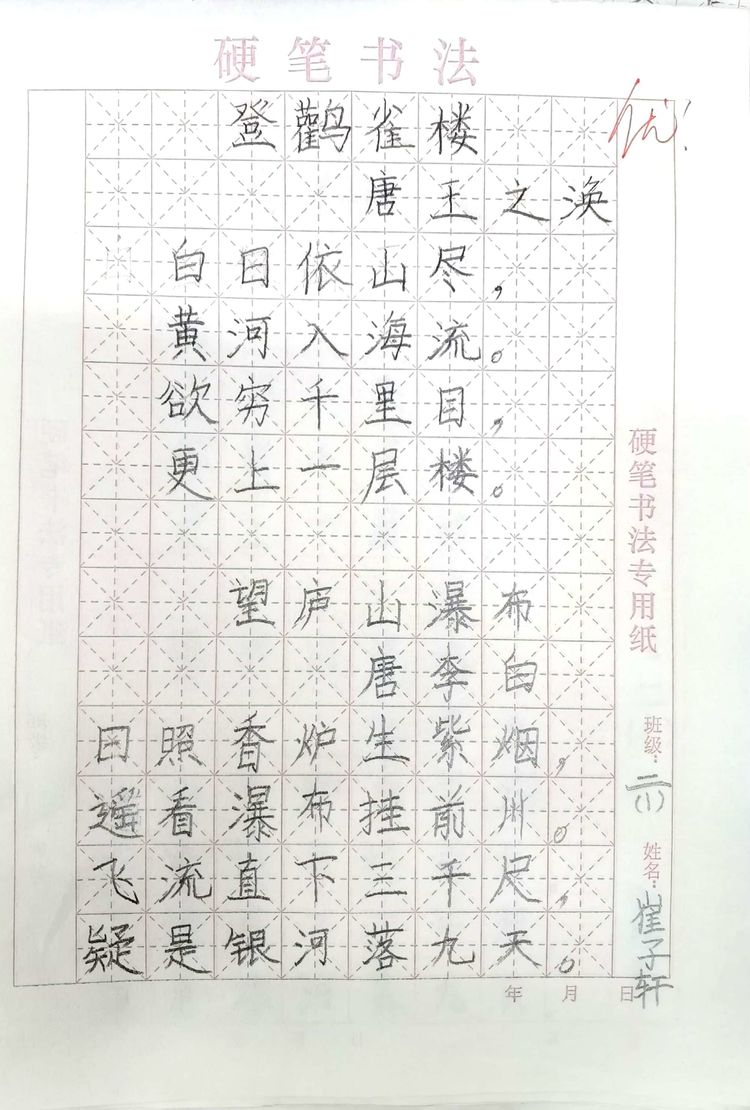 硬笔书法
优!
登鹳雀楼
唐王之涣
白日依山尽，
黄河入海流。
欲穷千里目，
更上一层楼。
望庐山瀑布
唐李白
日照香炉生紫烟，
遥看瀑布挂前川。
飞流直下三千尺，
疑是银河落九天。
硬笔书法专用纸
班级：二(1)
姓名：崔子轩
年 月 日